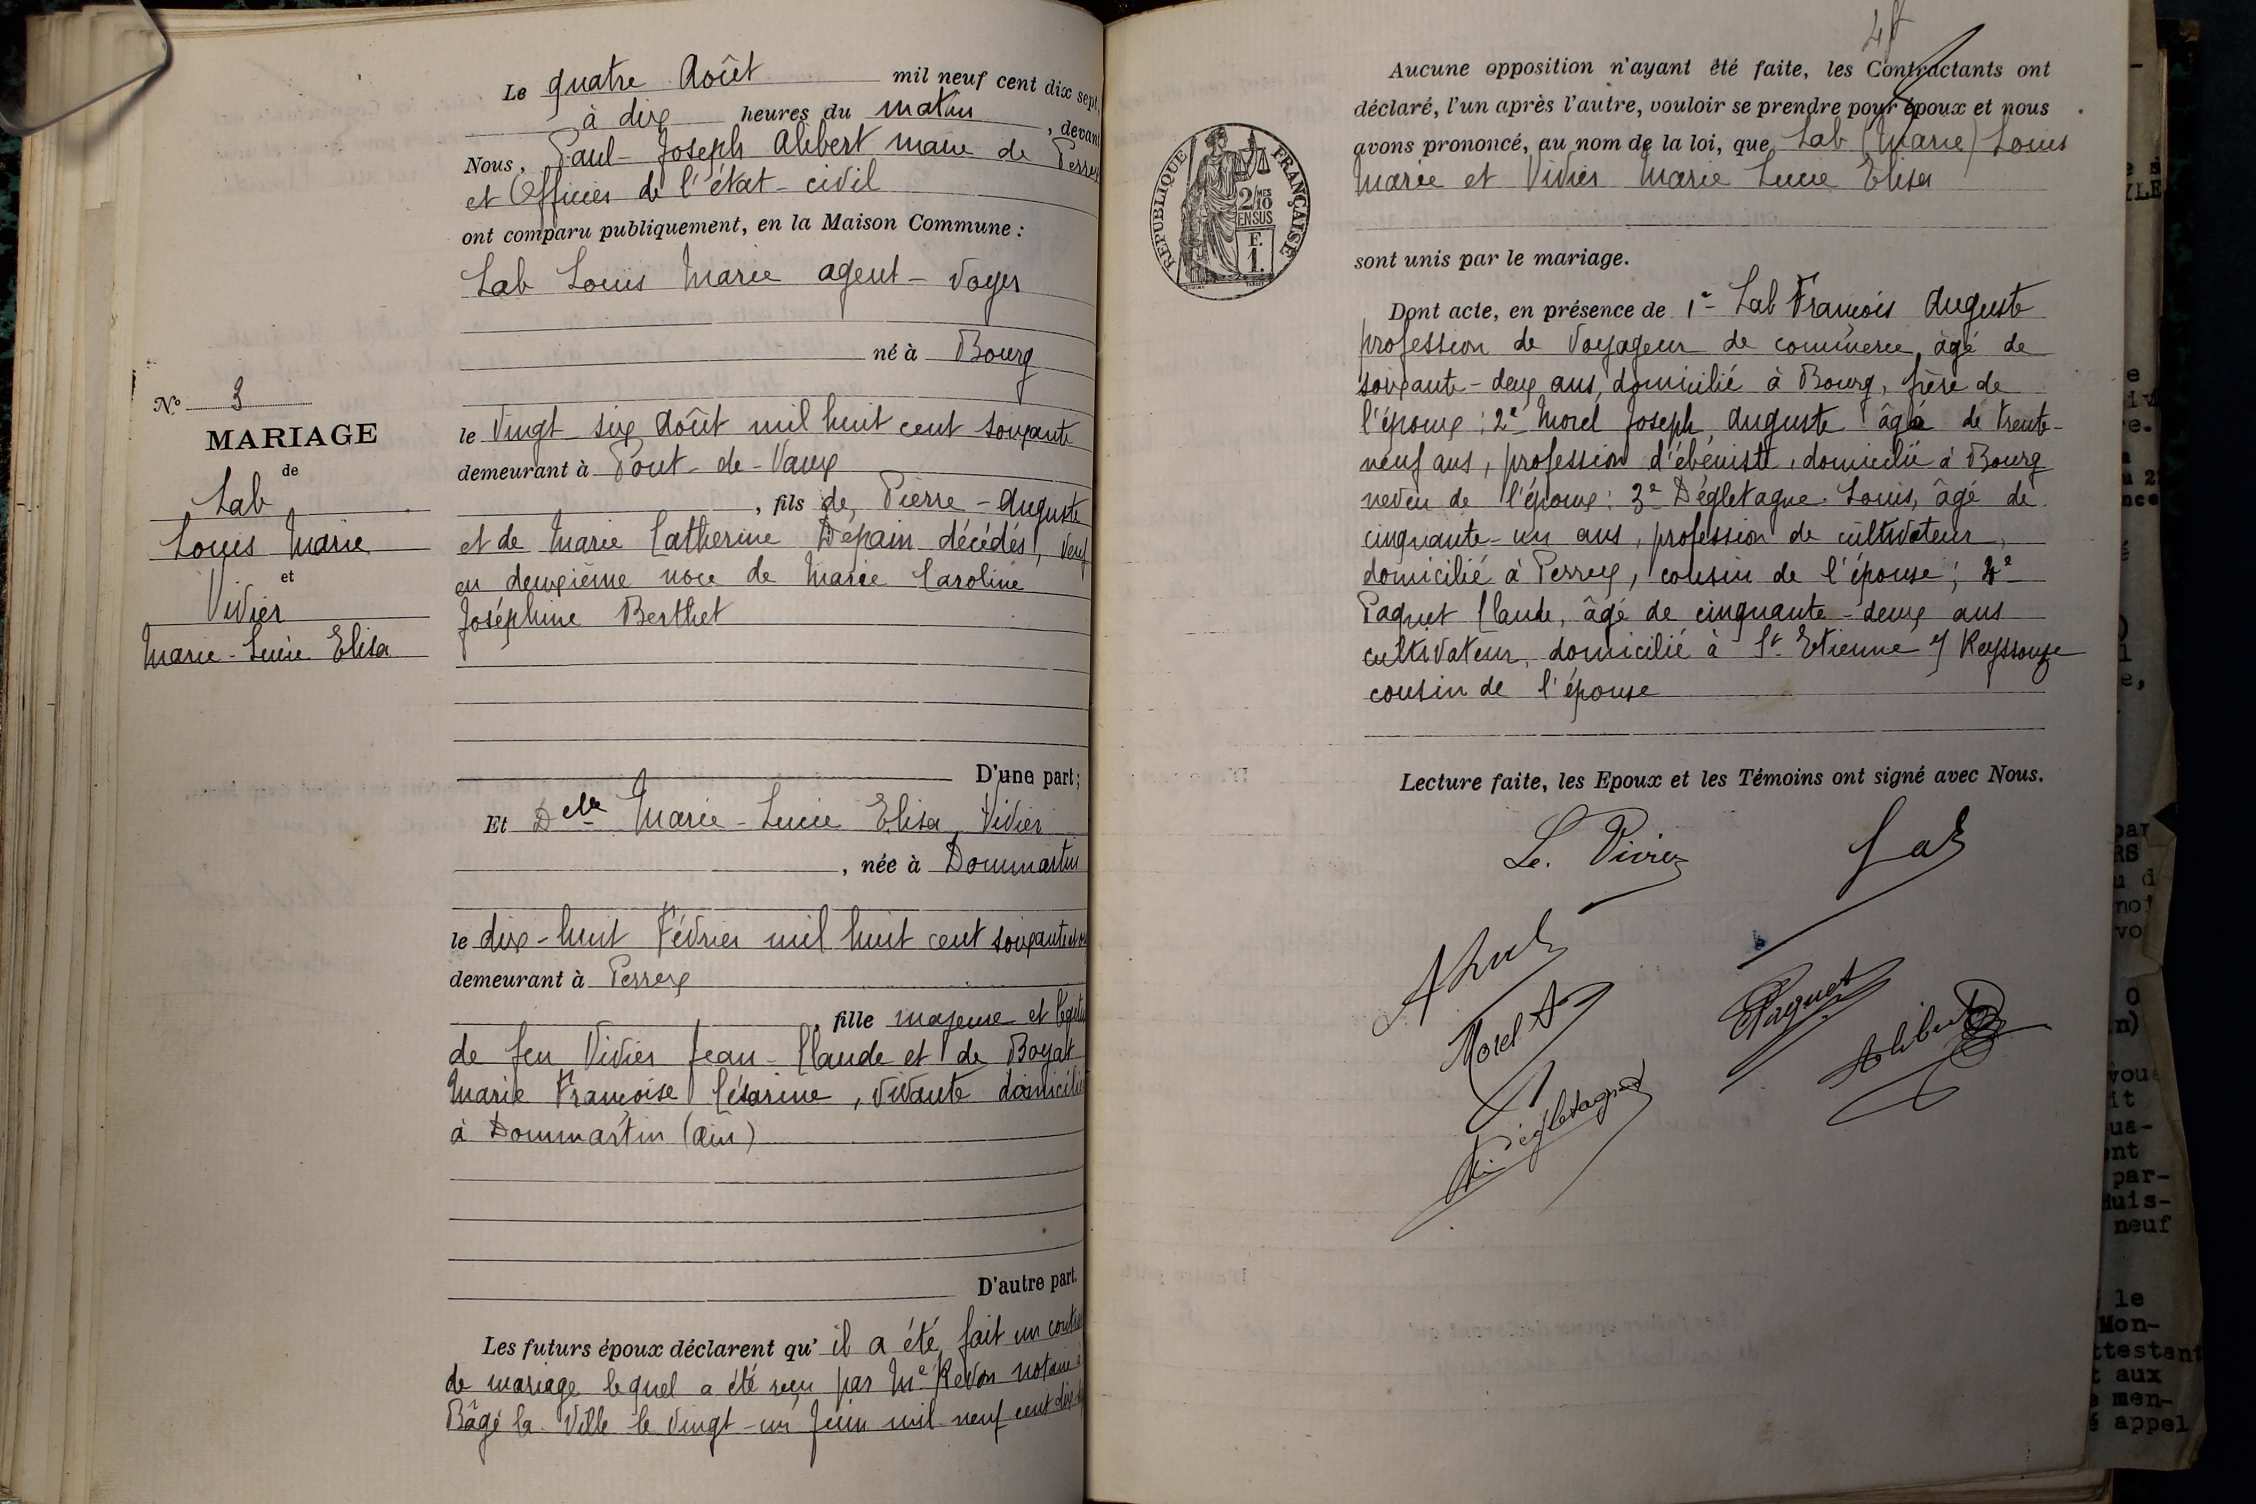 Le quatre Août mil neuf cent dix sept,
à dix heures du matin, devant
Nous, Paul-Joseph Alibert maire de Perrex
et Officier de l'état-civil
ont comparu publiquement, en la Maison Commune :
Lab Louis Marie agent-voyer
né à Bourg
le vingt six Août mil huit cent soixante
demeurant à Pont-de-Vaux
, fils de Pierre-Auguste
et de Marie Catherine Dépain décédés, veuf
en deuxième noce de Marie Caroline
Joséphine Berthet
D'une part;
Et Delle Marie-Lucie Elisa Vivier
, née à Dommartin
le dix-huit Février mil huit cent soixante et
demeurant à Perrex
, fille majeure et légit
de feu Vivier Jean-Claude et de Boyat
Marie Françoise Césarine, vivante domicilié
à Dommartin (Ain)
D'autre part.
Les futurs époux déclarent qu'il a été fait un contrat
de mariage lequel a été reçu par Me Revon notaire à
Bâgé la Ville le vingt-un Juin mil neuf cent dix
No 3
MARIAGE
de
Lab
Louis Marie
et
Vivier
Marie-Lucie Elisa
Aucune opposition n'ayant été faite, les Contractants ont
déclaré, l'un après l'autre, vouloir se prendre pour époux et nous
avons prononcé, au nom de la loi, que Lab (Marie) Louis
Marie et Vivier Marie Lucie Elisa
sont unis par le mariage.
Dont acte, en présence de 1e- Lab François Auguste
profession de voyageur de commerce, âgé de
soixante-deux ans, domicilié à Bourg, frère de
l'époux; 2e Morel Joseph Auguste âgé de trente-
neuf ans, profession d'ébéniste, domicilié à Bourg
neveu de l'époux: 3e Dégletagne Louis, âgé de
cinquante-un ans, profession de cultivateur,
domicilié à Perrex, cousin de l'épouse; 4e
Paquet Claude, âgé de cinquante-deux ans
cultivateur, domicilié à St Etienne s/ Reyssouze
cousin de l'épouse
Lecture faite, les Epoux et les Témoins ont signé avec Nous.
L. Vivier
Lab
Morel A
Paquet
Alibert
Dégletagne
RÉPUBLIQUE FRANÇAISE
2/10 MES
EN SUS
F.
1.